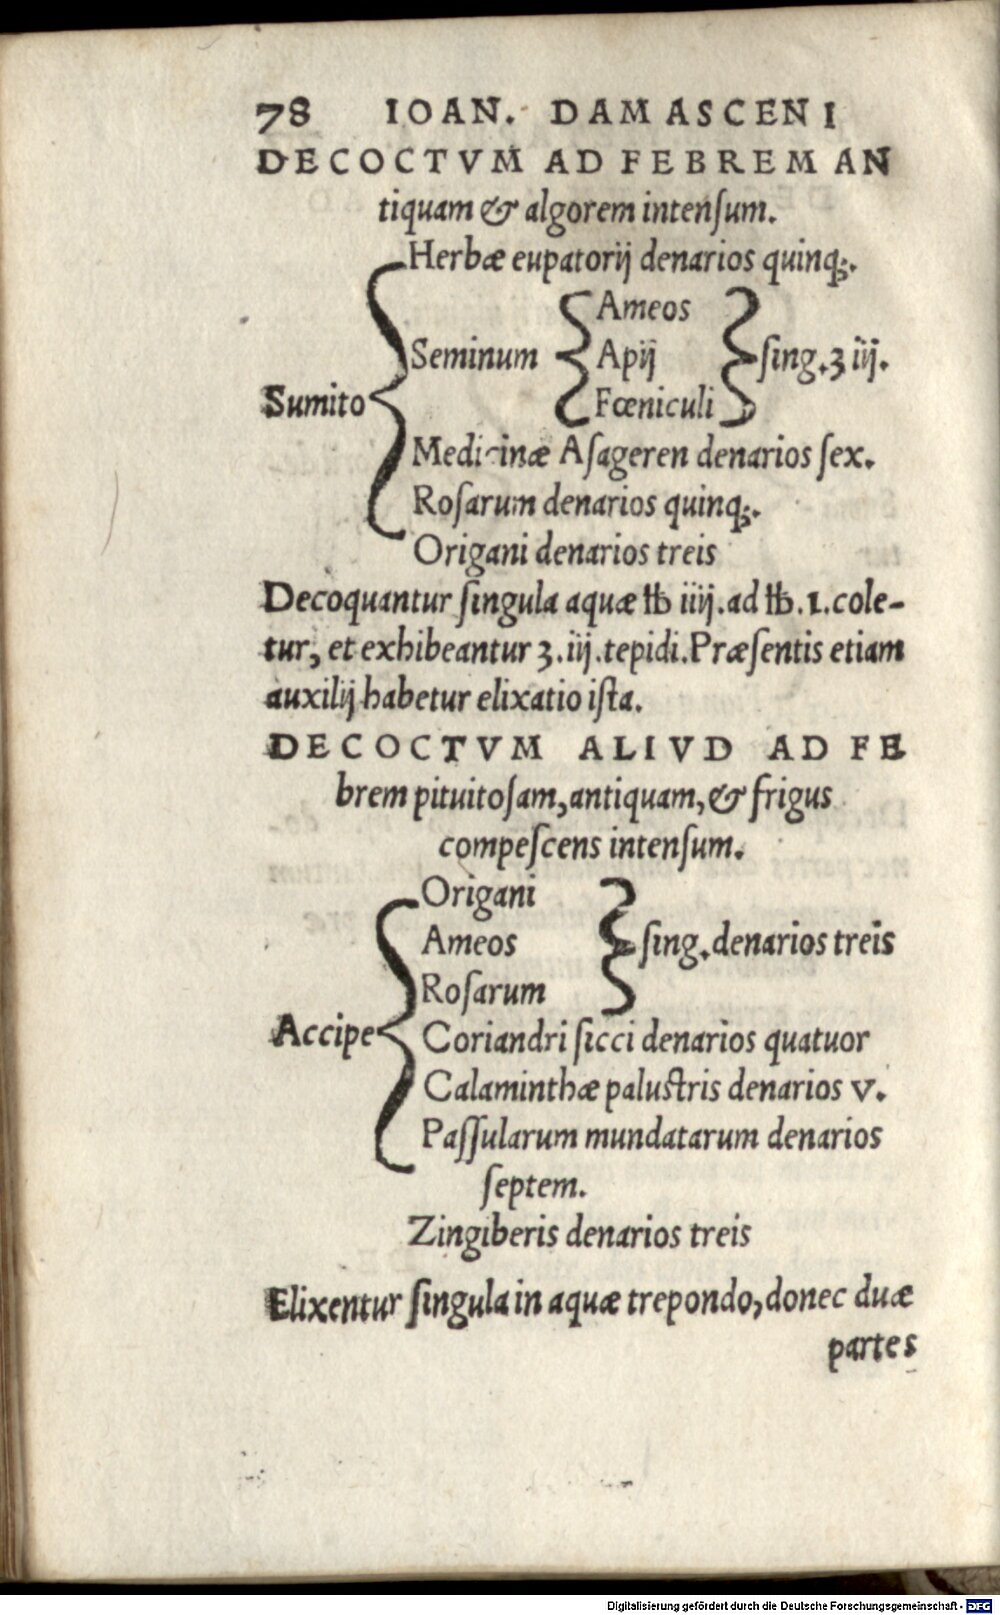 78 IOAN. DAMASCENI
DECOCTVM AD FEBREM AN
tiquam & algorem intenſum.
Herbæ eupatorij denarios quinq;.
Ameos
Seminum Apij ſing. ʒ iij.
Sumito Fœniculi
Medicinæ Aſageren denarios ſex.
Roſarum denarios quinq;.
Origani denarios treis
Decoquantur ſingula aquæ ℔ iiij. ad ℔. 1. cole-
tur, et exhibeantur ʒ. iij. tepidi. Præſentis etiam
auxilij habetur elixatio iſta.
DECOCTVM ALIVD AD FE
brem pituitoſam, antiquam, & frigus
compeſcens intenſum.
Origani
Ameos ſing. denarios treis
Roſarum
Accipe Coriandri ſicci denarios quatuor
Calaminthæ paluſtris denarios v.
Paſſularum mundatarum denarios
ſeptem.
Zingiberis denarios treis
Elixentur ſingula in aquæ trepondo, donec duæ
partes
Digitalisierung gefördert durch die Deutsche Forschungsgemeinschaft - DFG